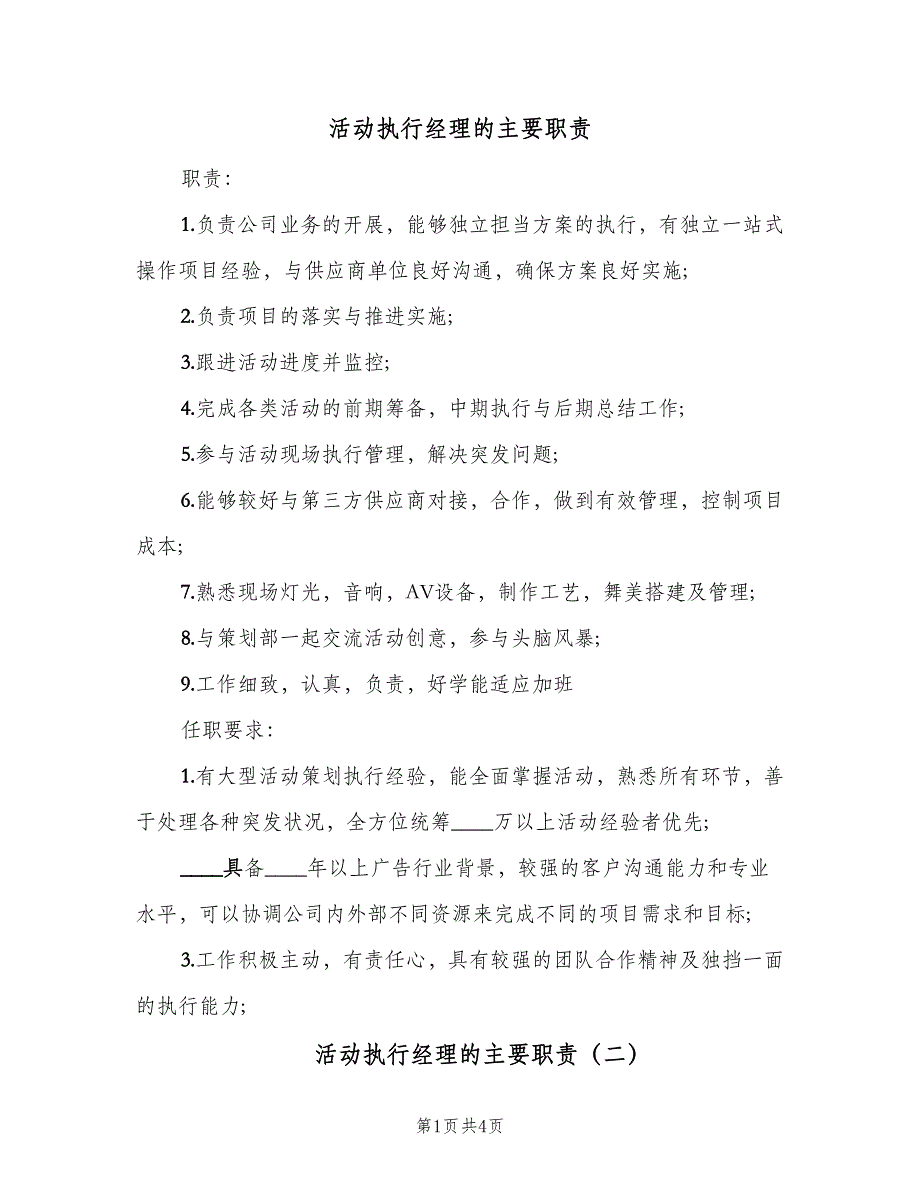 活动执行经理的主要职责
职责：
1.负责公司业务的开展，能够独立担当方案的执行，有独立一站式
操作项目经验，与供应商单位良好沟通，确保方案良好实施;
2.负责项目的落实与推进实施;
3.跟进活动进度并监控;
4.完成各类活动的前期筹备，中期执行与后期总结工作;
5.参与活动现场执行管理，解决突发问题;
6.能够较好与第三方供应商对接，合作，做到有效管理，控制项目
成本;
7.熟悉现场灯光，音响，AV设备，制作工艺，舞美搭建及管理;
8.与策划部一起交流活动创意，参与头脑风暴;
9.工作细致，认真，负责，好学能适应加班
任职要求：
1.有大型活动策划执行经验，能全面掌握活动，熟悉所有环节，善
于处理各种突发状况，全方位统筹____万以上活动经验者优先;
____具备____年以上广告行业背景，较强的客户沟通能力和专业
水平，可以协调公司内外部不同资源来完成不同的项目需求和目标;
3.工作积极主动，有责任心，具有较强的团队合作精神及独挡一面
的执行能力;
活动执行经理的主要职责（二）
第1页共4页